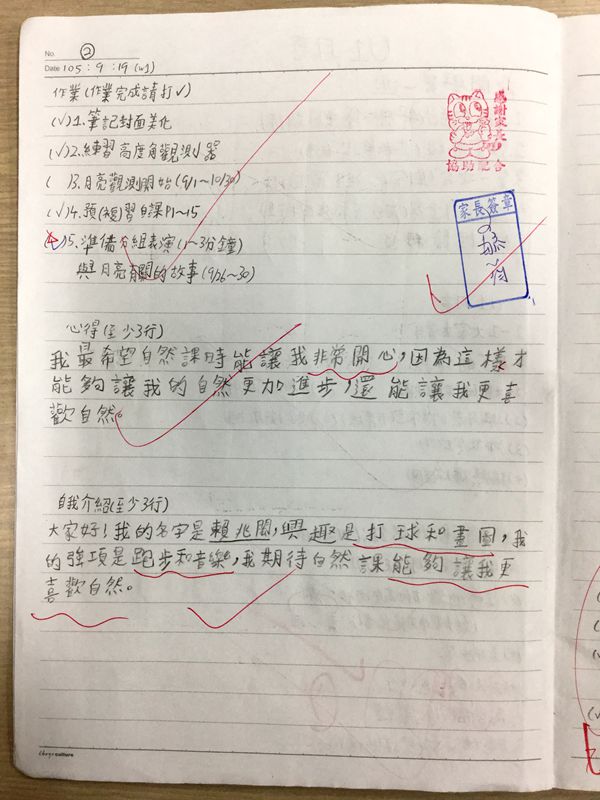 No. ②
Date 105 : 9 : 19 (w1)
作業(作業完成請打✓)
(✓)1.筆記封面美化
(✓)2.練習高度角觀測器
( )3.月亮觀測開始(9/1~10/30)
(✓)4.預(複)習自課P1~15
(✓)5.準備分組表演(1~3分鐘)
與月亮有關的故事(9/26~30)
感謝家長
協助配合
家長簽章
心得(至少3行)
我最希望自然課時能讓我非常開心,因為這樣才
能夠讓我的自然更加進步,還能讓我更喜
歡自然。
自我介紹(至少3行)
大家好!我的名字是賴兆閎,興趣是打球和畫圖,我
的強項是跑步和音樂,我期待自然課能夠讓我更
喜歡自然。